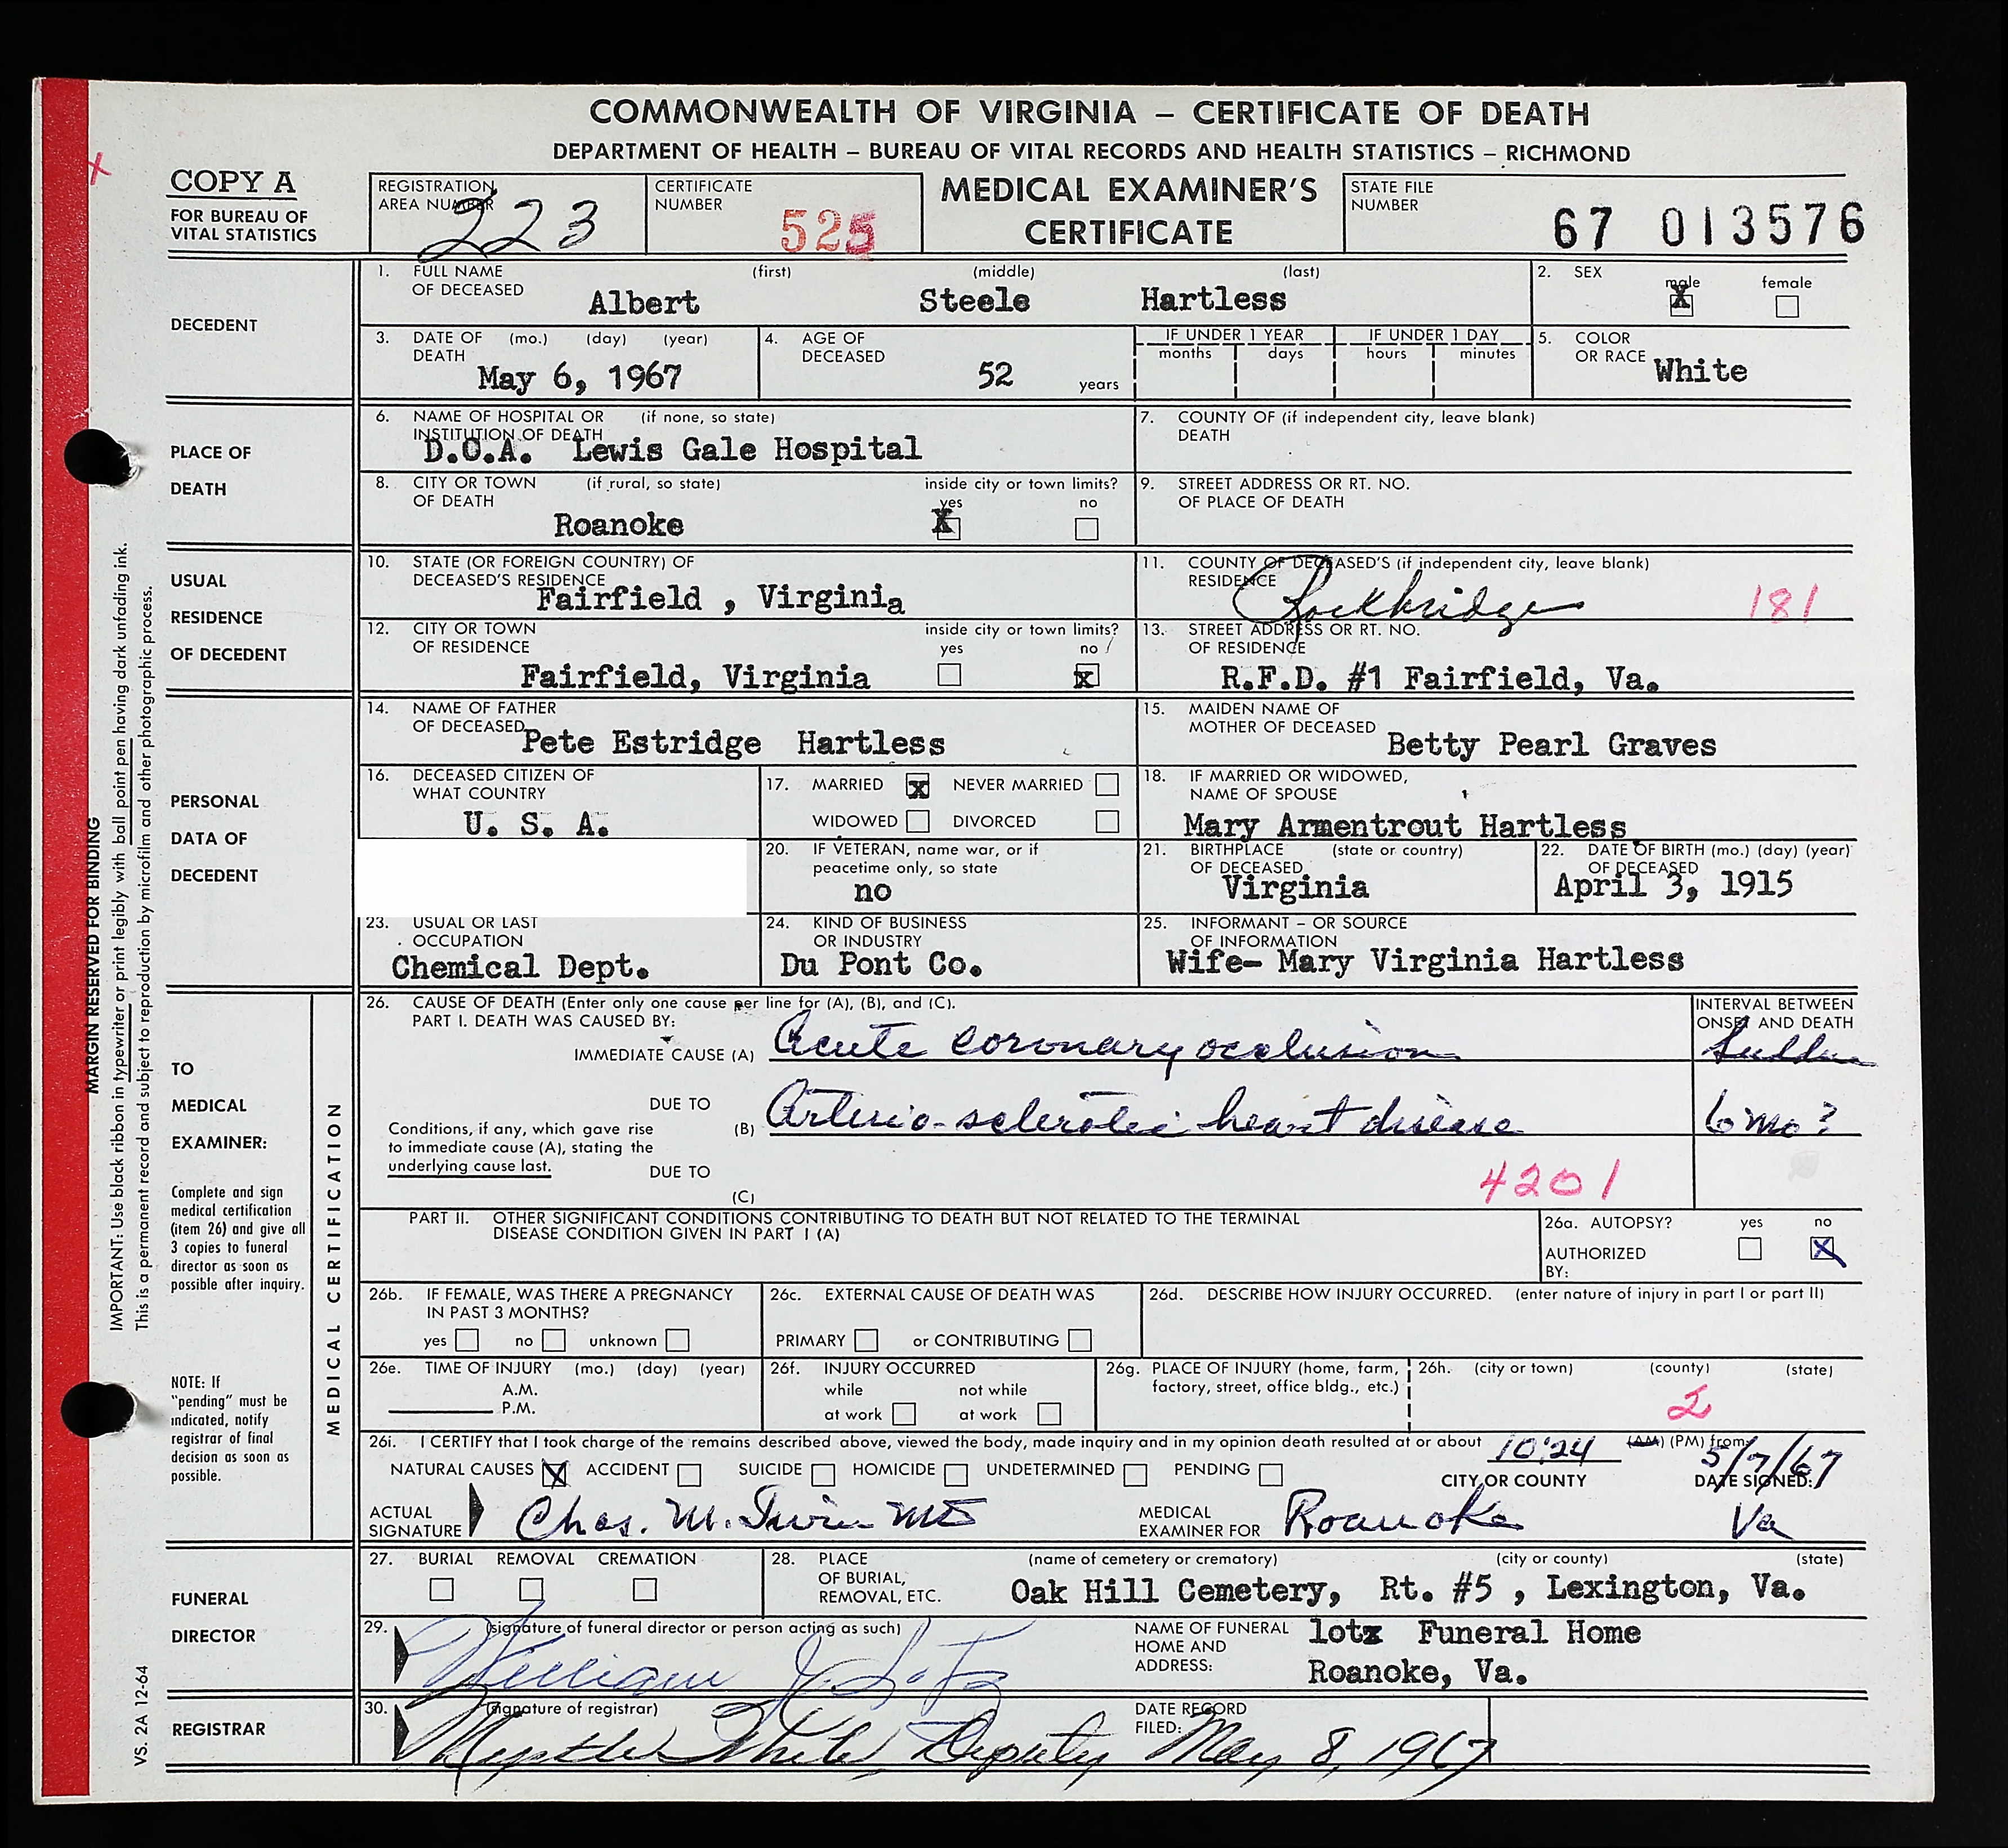 COMMONWEALTH OF VIRGINIA – CERTIFICATE OF DEATH
DEPARTMENT OF HEALTH – BUREAU OF VITAL RECORDS AND HEALTH STATISTICS – RICHMOND
X
COPY A
FOR BUREAU OF
VITAL STATISTICS
REGISTRATION
AREA NUMBER
223
CERTIFICATE
NUMBER
525
MEDICAL EXAMINER'S
CERTIFICATE
STATE FILE
NUMBER
67 013576
DECEDENT
1. FULL NAME (first) (middle) (last)
OF DECEASED
Albert Steele Hartless
2. SEX
male female
X
3. DATE OF (mo.) (day) (year)
DEATH
May 6, 1967
4. AGE OF
DECEASED
52 years
IF UNDER 1 YEAR
months days
IF UNDER 1 DAY
hours minutes
5. COLOR
OR RACE
White
PLACE OF
DEATH
6. NAME OF HOSPITAL OR (if none, so state)
INSTITUTION OF DEATH
D.O.A. Lewis Gale Hospital
7. COUNTY OF (if independent city, leave blank)
DEATH
8. CITY OR TOWN (if rural, so state)
OF DEATH
Roanoke
inside city or town limits?
yes no
X
9. STREET ADDRESS OR RT. NO.
OF PLACE OF DEATH
USUAL
RESIDENCE
OF DECEDENT
10. STATE (OR FOREIGN COUNTRY) OF
DECEASED'S RESIDENCE
Fairfield , Virginia
11. COUNTY OF DECEASED'S (if independent city, leave blank)
RESIDENCE
Rockbridge
181
12. CITY OR TOWN
OF RESIDENCE
Fairfield, Virginia
inside city or town limits?
yes no
x
13. STREET ADDRESS OR RT. NO.
OF RESIDENCE
R.F.D. #1 Fairfield, Va.
PERSONAL
DATA OF
DECEDENT
14. NAME OF FATHER
OF DECEASED
Pete Estridge Hartless
15. MAIDEN NAME OF
MOTHER OF DECEASED
Betty Pearl Graves
16. DECEASED CITIZEN OF
WHAT COUNTRY
U. S. A.
17. MARRIED x NEVER MARRIED
WIDOWED DIVORCED
18. IF MARRIED OR WIDOWED,
NAME OF SPOUSE
Mary Armentrout Hartless
20. IF VETERAN, name war, or if
peacetime only, so state
no
21. BIRTHPLACE (state or country)
OF DECEASED
Virginia
22. DATE OF BIRTH (mo.) (day) (year)
OF DECEASED
April 3, 1915
23. USUAL OR LAST
OCCUPATION
Chemical Dept.
24. KIND OF BUSINESS
OR INDUSTRY
Du Pont Co.
25. INFORMANT – OR SOURCE
OF INFORMATION
Wife- Mary Virginia Hartless
TO
MEDICAL
EXAMINER:
Complete and sign
medical certification
(item 26) and give all
3 copies to funeral
director as soon as
possible after inquiry.
NOTE: If
"pending" must be
indicated, notify
registrar of final
decision as soon as
possible.
MEDICAL CERTIFICATION
26. CAUSE OF DEATH (Enter only one cause per line for (A), (B), and (C).
PART I. DEATH WAS CAUSED BY:
INTERVAL BETWEEN
ONSET AND DEATH
IMMEDIATE CAUSE (A) Acute coronary occlusion Sudden
DUE TO
(B) Arterio-sclerotic heart disease 6 mo?
Conditions, if any, which gave rise
to immediate cause (A), stating the
underlying cause last.
DUE TO
(C)
4201
PART II. OTHER SIGNIFICANT CONDITIONS CONTRIBUTING TO DEATH BUT NOT RELATED TO THE TERMINAL
DISEASE CONDITION GIVEN IN PART I (A)
26a. AUTOPSY? yes no
AUTHORIZED
BY:
X
26b. IF FEMALE, WAS THERE A PREGNANCY
IN PAST 3 MONTHS?
yes no unknown
26c. EXTERNAL CAUSE OF DEATH WAS
PRIMARY or CONTRIBUTING
26d. DESCRIBE HOW INJURY OCCURRED. (enter nature of injury in part I or part II)
26e. TIME OF INJURY (mo.) (day) (year)
A.M.
P.M.
26f. INJURY OCCURRED
while not while
at work at work
26g. PLACE OF INJURY (home, farm,
factory, street, office bldg., etc.)
26h. (city or town) (county) (state)
26i. I CERTIFY that I took charge of the remains described above, viewed the body, made inquiry and in my opinion death resulted at or about 10:24 (AM) (PM) from:
NATURAL CAUSES X ACCIDENT SUICIDE HOMICIDE UNDETERMINED PENDING
CITY OR COUNTY
DATE SIGNED:
5/7/67
ACTUAL
SIGNATURE
Chas. M. Irvin MD
MEDICAL
EXAMINER FOR
Roanoke Va
FUNERAL
DIRECTOR
27. BURIAL REMOVAL CREMATION
28. PLACE (name of cemetery or crematory) (city or county) (state)
OF BURIAL,
REMOVAL, ETC.
Oak Hill Cemetery, Rt. #5 , Lexington, Va.
29. (signature of funeral director or person acting as such)
William J Lotz
NAME OF FUNERAL
HOME AND
ADDRESS:
lotz Funeral Home
Roanoke, Va.
REGISTRAR
30. (signature of registrar)
Myrtle White, Deputy
DATE RECORD
FILED:
May 8, 1967
MARGIN RESERVED FOR BINDING
IMPORTANT: Use black ribbon in typewriter or print legibly with ball point pen having dark unfading ink.
This is a permanent record and subject to reproduction by microfilm and other photographic process.
VS. 2A 12-64